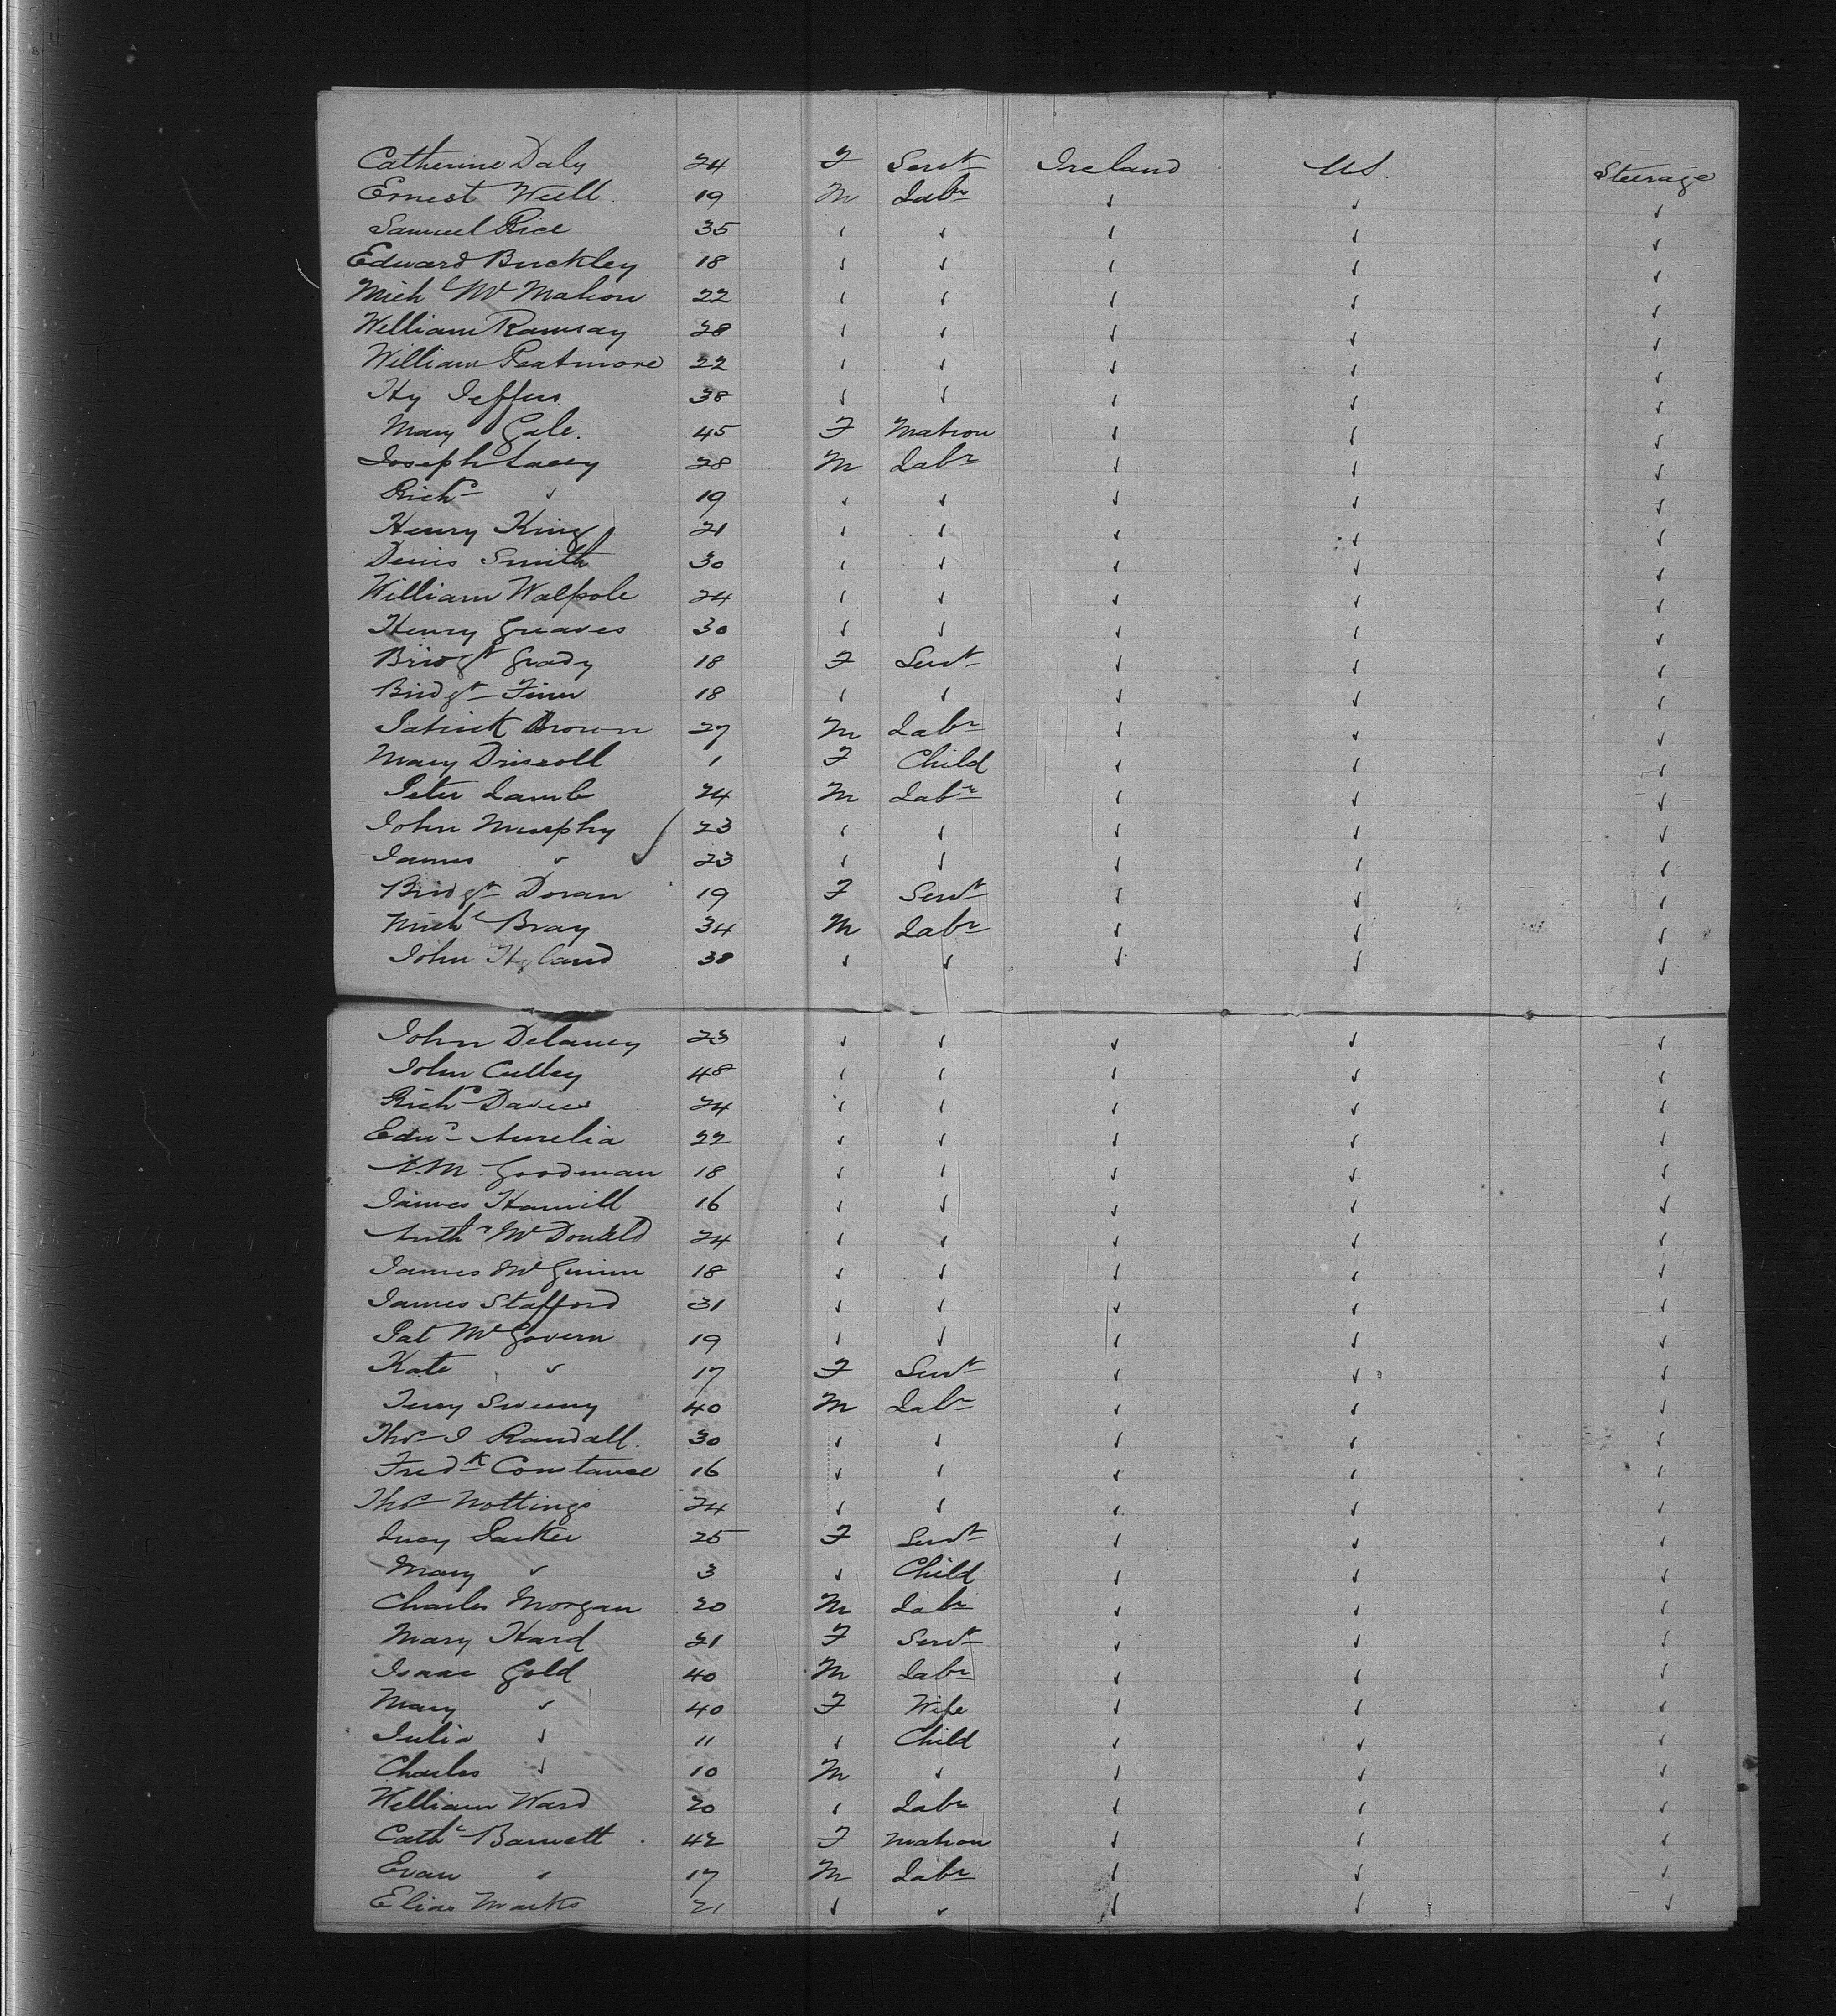 Catherine Daly 24 F Servt Ireland US. Steerage
Ernest Well 19 M Labr ✓ ✓ ✓
Samuel Rice 35 ✓ ✓ ✓ ✓ ✓
Edward Buckley 18 ✓ ✓ ✓ ✓ ✓
Michl McMahon 22 ✓ ✓ ✓ ✓ ✓
William Ramsay 28 ✓ ✓ ✓ ✓ ✓
William Peatmore 22 ✓ ✓ ✓ ✓ ✓
Hy Jeffers 38 ✓ ✓ ✓ ✓ ✓
Mary Gale. 45 F Matron ✓ ✓ ✓
Joseph Lacey 28 M Labr ✓ ✓ ✓
Richd ✓ 19 ✓ ✓ ✓ ✓ ✓
Henry King 21 ✓ ✓ ✓ ✓ ✓
Denis Smith 30 ✓ ✓ ✓ ✓ ✓
William Walpole 24 ✓ ✓ ✓ ✓ ✓
Henry Greaves 30 ✓ ✓ ✓ ✓ ✓
Bridgt Grady 18 F Servt ✓ ✓ ✓
Bridgt Finn 18 ✓ ✓ ✓ ✓ ✓
Patrick Brown 27 M Labr ✓ ✓ ✓
Mary Driscoll 1 F Child ✓ ✓ ✓
Peter Lamb 24 M Labr ✓ ✓ ✓
John Murphy 23 ✓ ✓ ✓ ✓ ✓
James ✓ ✓ 23 ✓ ✓ ✓ ✓ ✓
Bridgt Doran 19 F Servt ✓ ✓ ✓
Michl Bray 34 M Labr ✓ ✓ ✓
John Hyland 38 ✓ ✓ ✓ ✓ ✓
John Delaney 23 ✓ ✓ ✓ ✓ ✓
John Culley 48 ✓ ✓ ✓ ✓ ✓
Richd Davies 24 ✓ ✓ ✓ ✓ ✓
Edwd Aurelia 22 ✓ ✓ ✓ ✓ ✓
A. M. Goodman 18 ✓ ✓ ✓ ✓ ✓
James Hamill 16 ✓ ✓ ✓ ✓ ✓
Arthr McDonald 24 ✓ ✓ ✓ ✓ ✓
James McGuinn 18 ✓ ✓ ✓ ✓ ✓
James Stafford 31 ✓ ✓ ✓ ✓ ✓
Pat McGovern 19 ✓ ✓ ✓ ✓ ✓
Kate ✓ 17 F Servt ✓ ✓ ✓
Terry Sweeny 40 M Labr ✓ ✓ ✓
Thos J Randall. 30 ✓ ✓ ✓ ✓ ✓
Fredk Constance 16 ✓ ✓ ✓ ✓ ✓
Thos Nottings 24 ✓ ✓ ✓ ✓ ✓
Lucy Parker 25 F Servt ✓ ✓ ✓
Mary ✓ 3 ✓ Child ✓ ✓ ✓
Charles Morgan 20 M Labr ✓ ✓ ✓
Mary Hard 21 F Servt ✓ ✓ ✓
Isaac Gold 40 M Labr ✓ ✓ ✓
Mary ✓ 40 F Wife ✓ ✓ ✓
Julia ✓ 11 ✓ Child ✓ ✓ ✓
Charles ✓ 10 M ✓ ✓ ✓ ✓
William Ward 20 ✓ Labr ✓ ✓ ✓
Cathe Barnett 42 F Matron ✓ ✓ ✓
Evan ✓ 17 M Labr ✓ ✓ ✓
Elias Marks 21 ✓ ✓ ✓ ✓ ✓